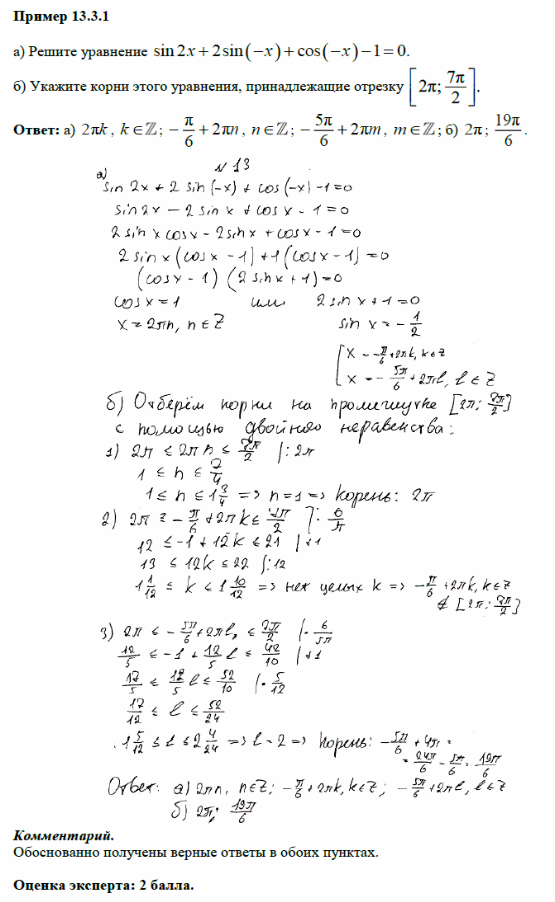 Пример 13.3.1
а) Решите уравнение sin 2x + 2 sin(−x) + cos(−x) − 1 = 0.
б) Укажите корни этого уравнения, принадлежащие отрезку [2π; 7π/2].
Ответ: а) 2πk, k ∈ ℤ; −π/6 + 2πn, n ∈ ℤ; −5π/6 + 2πm, m ∈ ℤ; б) 2π; 19π/6.
N 13
а)
sin 2x + 2 sin(−x) + cos(−x) − 1 = 0
sin 2x − 2 sin x + cos x − 1 = 0
2 sin x cos x − 2 sin x + cos x − 1 = 0
2 sin x (cos x − 1) + 1 (cos x − 1) = 0
(cos x − 1) (2 sin x + 1) = 0
cos x = 1 или 2 sin x + 1 = 0
x = 2πn, n ∈ Z sin x = −1/2
[ x = −π/6 + 2πk, k ∈ Z
x = −5π/6 + 2πl, l ∈ Z
б) Отберём корни на промежутке [2π; 7π/2]
с помощью двойного неравенства:
1) 2π ≤ 2πn ≤ 7π/2 |: 2π
1 ≤ n ≤ 7/4
1 ≤ n ≤ 1 3/4 => n = 1 => корень: 2π
2) 2π ≤ −π/6 + 2πk ≤ 7π/2 |· 6/π
12 ≤ −1 + 12k ≤ 21 | +1
13 ≤ 12k ≤ 22 |: 12
1 1/12 ≤ k ≤ 1 10/12 => нет целых k => −π/6 + 2πk, k ∈ Z
∉ [2π; 7π/2]
3) 2π ≤ −5π/6 + 2πl, ≤ 7π/2 |· 6/5π
12/5 ≤ −1 + 12/5 l ≤ 42/10 | +1
17/5 ≤ 12/5 l ≤ 52/10 |· 5/12
17/12 ≤ l ≤ 52/24
1 5/12 ≤ l ≤ 2 4/24 => l = 2 => корень: −5π/6 + 4π =
= 24π/6 − 5π/6 = 19π/6
Ответ: а) 2πn, n ∈ Z; −π/6 + 2πk, k ∈ Z; −5π/6 + 2πl, l ∈ Z
б) 2π; 19π/6
Комментарий.
Обоснованно получены верные ответы в обоих пунктах.
Оценка эксперта: 2 балла.